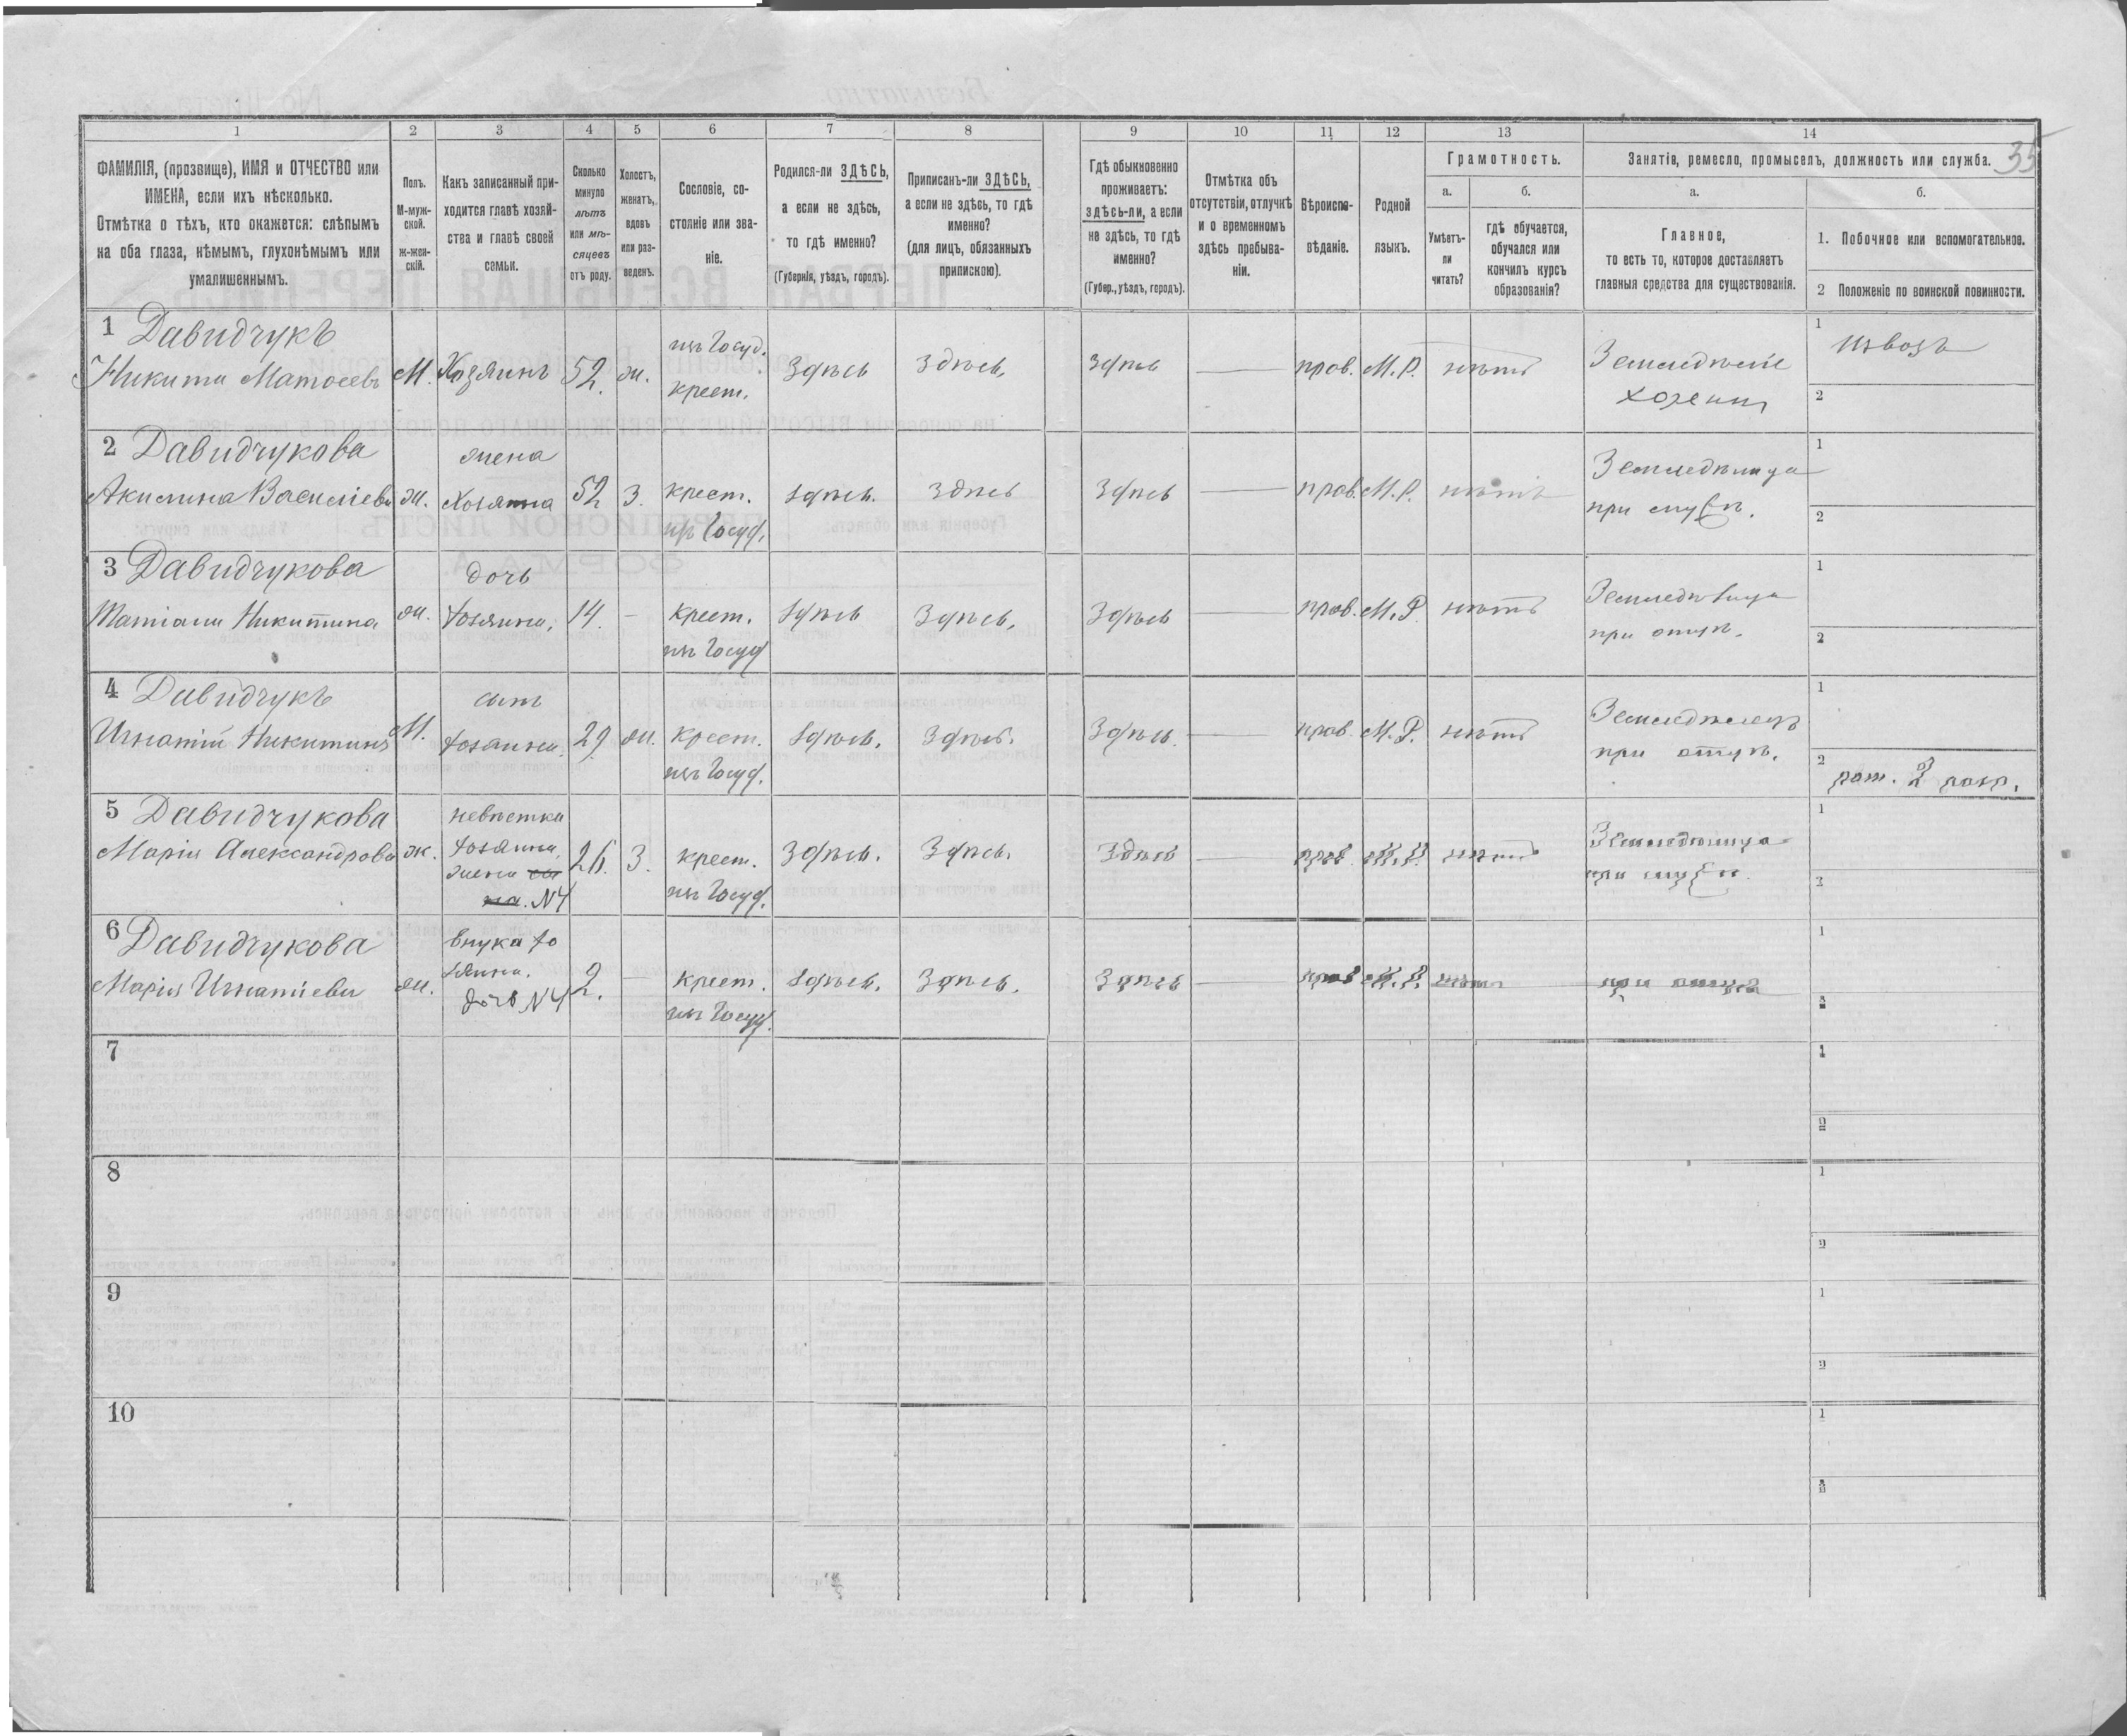 1 2 3 4 5 6 7 8 9 10 11 12 13 14
35
ФАМИЛІЯ, (прозвище), ИМЯ и ОТЧЕСТВО или
ИМЕНА, если ихъ нѣсколько.
Отмѣтка о тѣхъ, кто окажется: слѣпымъ
на оба глаза, нѣмымъ, глухонѣмымъ или
умалишеннымъ.
Полъ.
М-муж-
ской.
ж-жен-
скій.
Какъ записанный при-
ходится главѣ хозяй-
ства и главѣ своей
семьи.
Сколько
минуло
лѣтъ
или мѣ-
сяцевъ
отъ роду.
Холостъ,
женатъ,
вдовъ
или раз-
веденъ.
Сословіе, со-
стояніе или зва-
ніе.
Родился-ли ЗДѢСЬ,
а если не здѣсь,
то гдѣ именно?
(Губернія, уѣздъ, городъ).
Приписанъ-ли ЗДѢСЬ,
а если не здѣсь, то гдѣ
именно?
(для лицъ, обязанныхъ
припискою).
Гдѣ обыкновенно
проживаетъ:
здѣсь-ли, а если
не здѣсь, то гдѣ
именно?
(Губер., уѣздъ, городъ).
Отмѣтка объ
отсутствіи, отлучкѣ
и о временномъ
здѣсь пребыва-
ніи.
Вѣроиспо-
вѣданіе.
Родной
языкъ.
Грамотность.
а. б.
Умѣетъ-
ли
читать?
гдѣ обучается,
обучался или
кончилъ курсъ
образованія?
Занятіе, ремесло, промыселъ, должность или служба.
а. б.
Главное,
то есть то, которое доставляетъ
главныя средства для существованія.
1. Побочное или вспомогательное.
2 Положеніе по воинской повинности.
1 Давидчукъ
Никита Матвеевъ М. Хозяинъ 52. ж. изъ Госуд.
крест. Здѣсь Здѣсь, Здѣсь — прав. М.Р. нѣтъ Земледѣліе
хозяинъ
1 извозъ
2
2 Давидчукова
Акилина Василіева ж. жена
хозяина 52 З. крест.
изъ Госуд. здѣсь. здѣсь Здѣсь — прав. М.Р. нѣтъ Земледѣлица
при мужѣ.
1
2
3 Давидчукова
Татіана Никитина ж. дочь
хозяина. 14. — крест.
изъ Госуд здѣсь Здѣсь, Здѣсь — прав. М.Р. нѣтъ Земледѣлица
при отцѣ.
1
2
4 Давидчукъ
Игнатій Никитинъ М. сынъ
хозяина. 29. ж. крест.
изъ Госуд. здѣсь. Здѣсь. Здѣсь. — прав. М.Р. нѣтъ Земледѣлецъ
при отцѣ.
1
2 рат. 2 разр.
5 Давидчукова
Марія Александрова ж. невѣстка
хозяина,
жена
N4 26. З. крест.
изъ Госуд. Здѣсь. Здѣсь. Здѣсь — прав. М.Р. нѣтъ Земледѣлица
при мужѣ.
1
2
6 Давидчукова
Марія Игнатіева ж. внука хо
зяина.
дочь N4 2. — крест.
изъ Госуд. здѣсь. Здѣсь. Здѣсь — прав М.Р. нѣтъ при отцѣ
1
2
7
1
2
8
1
2
9
1
2
10
1
2